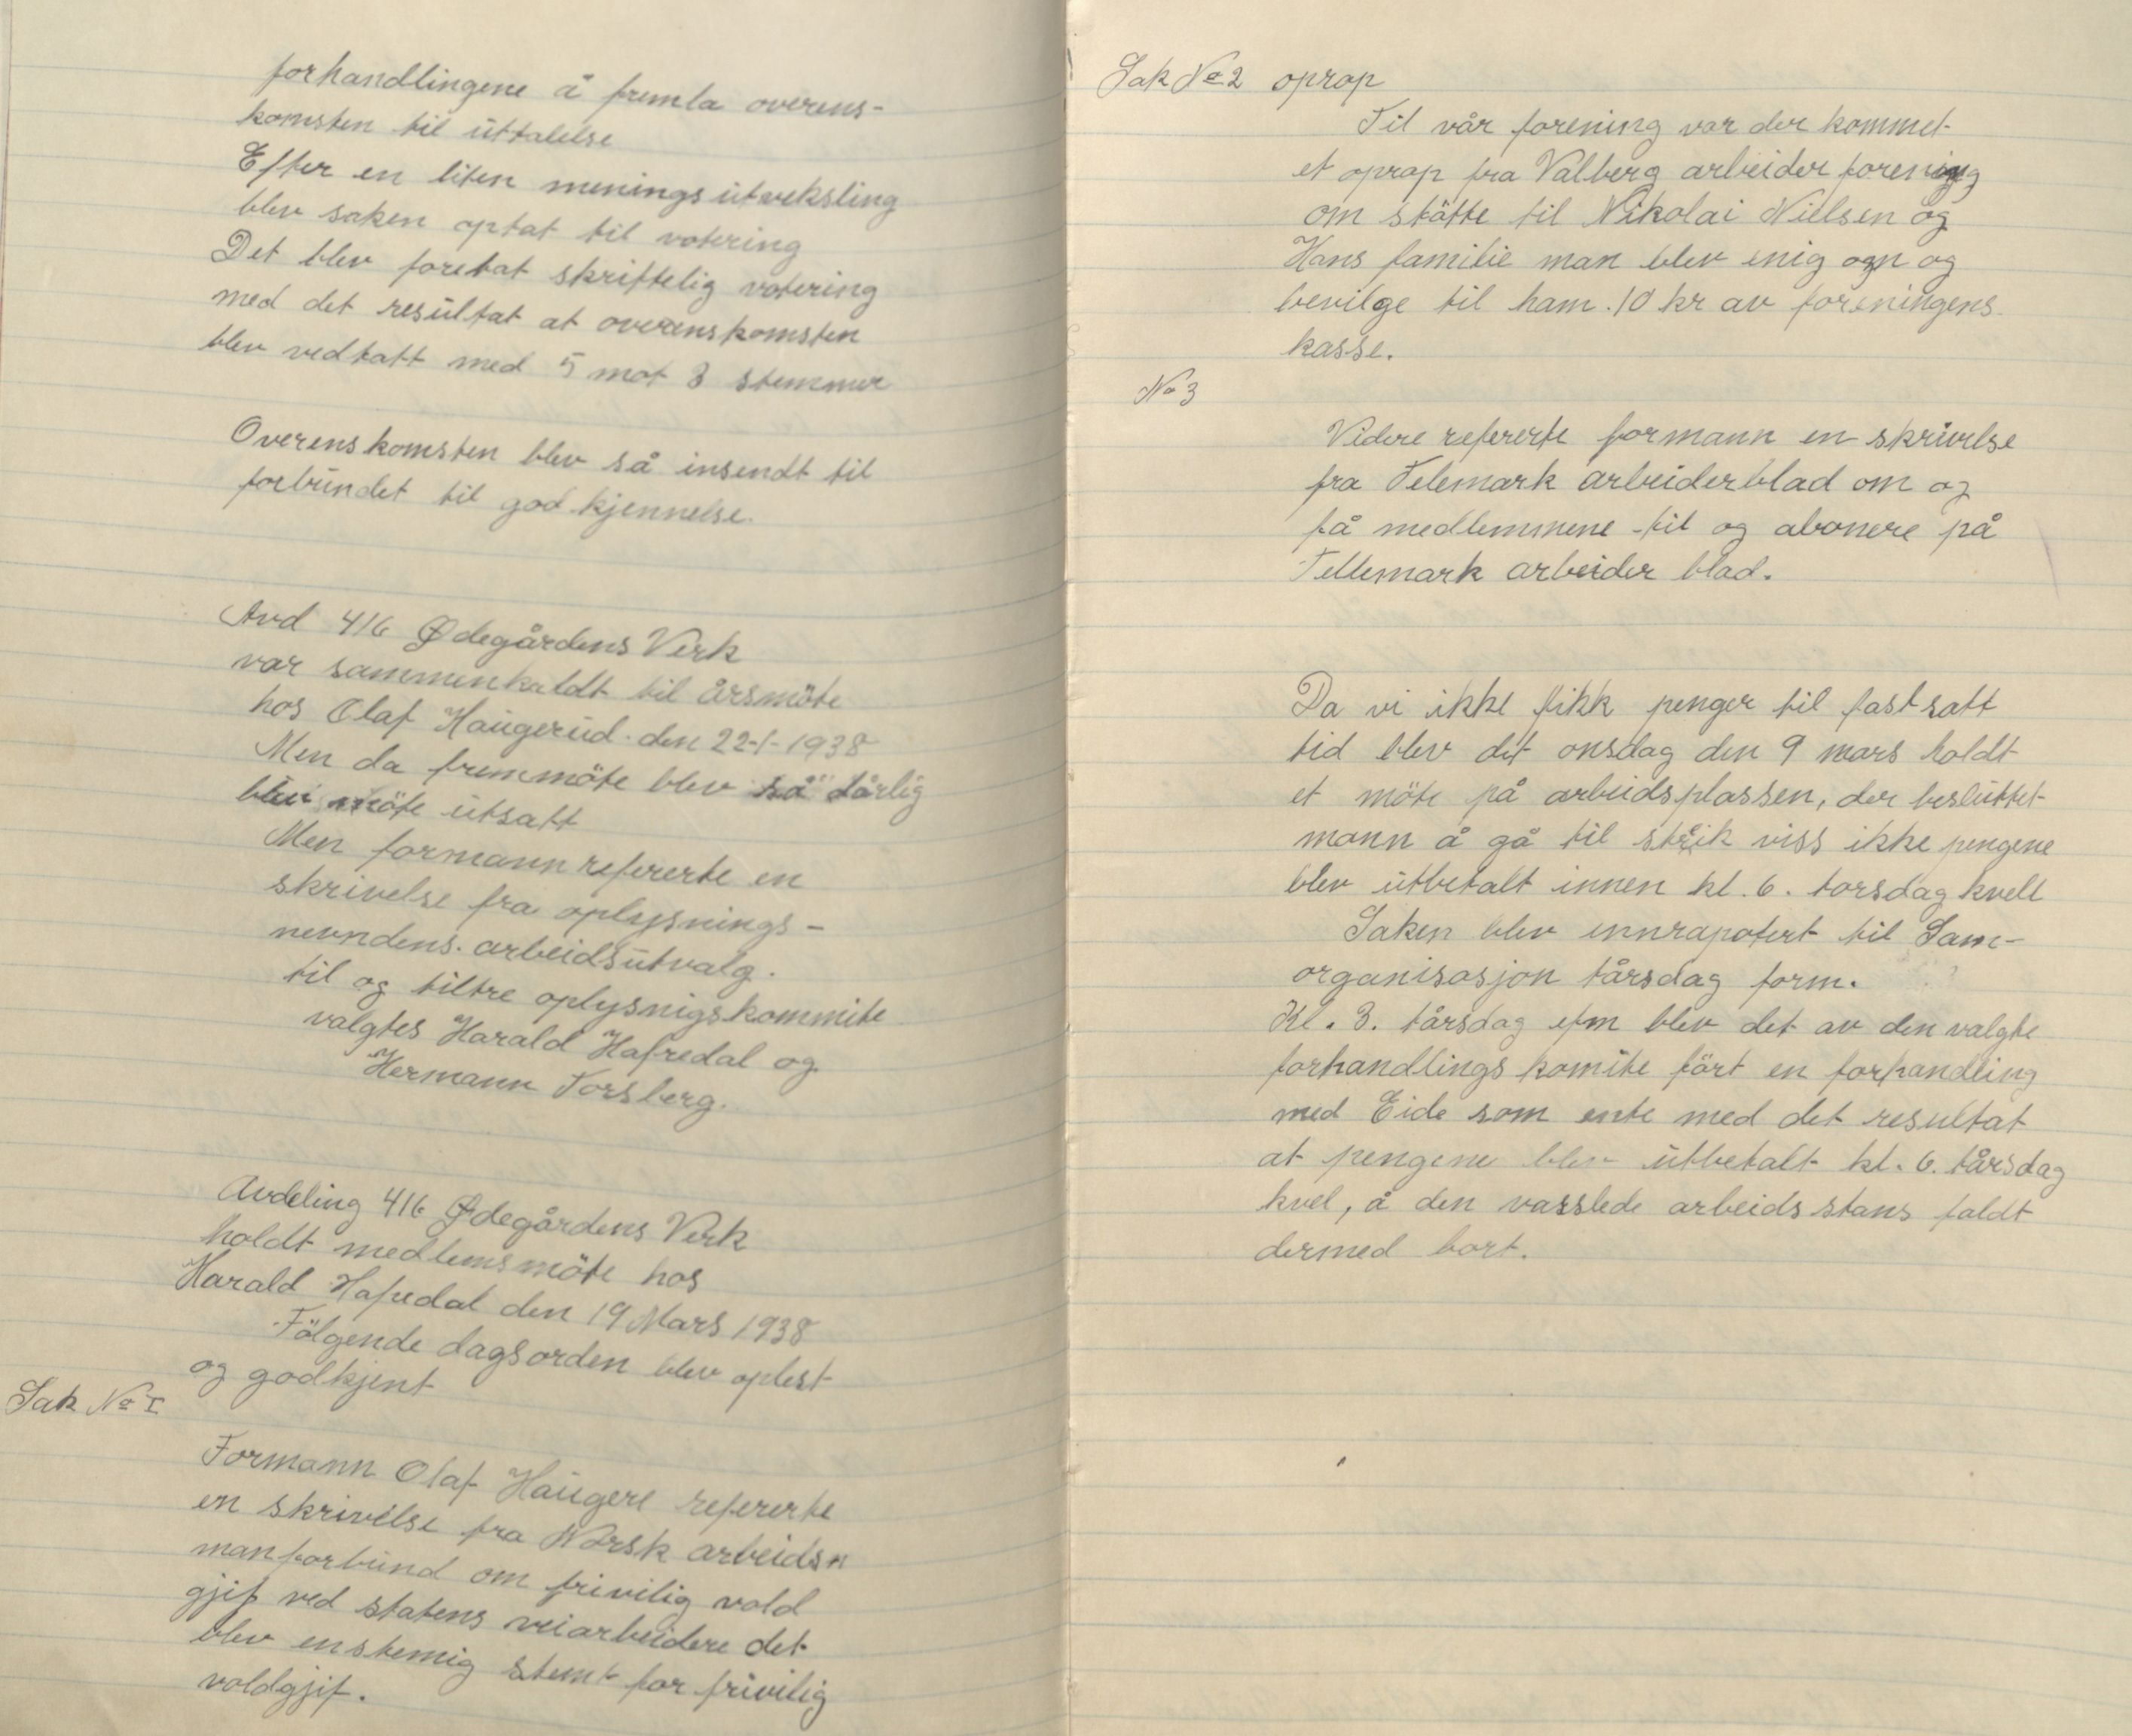 forhandlingene å fremla overens-
komsten til uttalelse
Efter en liten meningsutveksling
blev saken optat til votering
Det blev foretat skriftelig votering
med det resultat at overenskomsten
blev vedtatt med 5 mot 3 stemmer
Overenskomsten blev så insendt til
forbundet til god kjennelse.
Avd 416 Ødegårdens Verk
var sammenkaldt til årsmöte
hos Olaf Haugerud den 22-1-1938
Men da fremmöte blev så dårlig
blev möte utsatt
Men formann refererte en
skrivelse fra oplysnings-
nevndens arbeidsutvalg.
til og tiltre oplysnigskommite
valgtes Harald Hafredal og
Hermann Forsberg.
Avdeling 416 Ødegårdens Verk
holdt medlemsmöte hos
Harald Hafredal den 19 Mars 1938
Fölgende dagsorden blev oplest
og godkjent
Sak No I
Formann Olaf Haugere refererte
en skrivelse fra Norsk arbeids
manforbund om frivilig vold
gjif ved statens veiarbeidere det
blev enstemig stemt for frivilig
voldgjif.
Sak No 2 oprop
Til vår forening var der kommet
et oprop fra Valberg arbeider forening
om stötte til Nikolai Nielsen og
Hans familie man blev enig om og
bevilge til ham. 10 kr av foreningens
kasse.
No 3
Videre refererte formann en skrivelse
fra Telemark arbeiderblad om og
få medlemmene til og abonere på
Tellemark arbeider blad.
Da vi ikke fikk penger til fastsatt
tid blev det onsdag den 9 mars holdt
et möte på arbeidsplassen, der besluttet
mann å gå til streik viss ikke pengene
blev utbetalt innen kl. 6. torsdag kvell
Saken blev innrapotert til Sam-
organisasjon tårsdag form.
Kl. 3. tårsdag efm blev det av den valgte
forhandlings komite fört en forhandling
med Eide som ente med det resultat
at pengene blev utbetalt kl. 6. tårsdag
kvel, å den varslede arbeidsstans faldt
dermed bort.